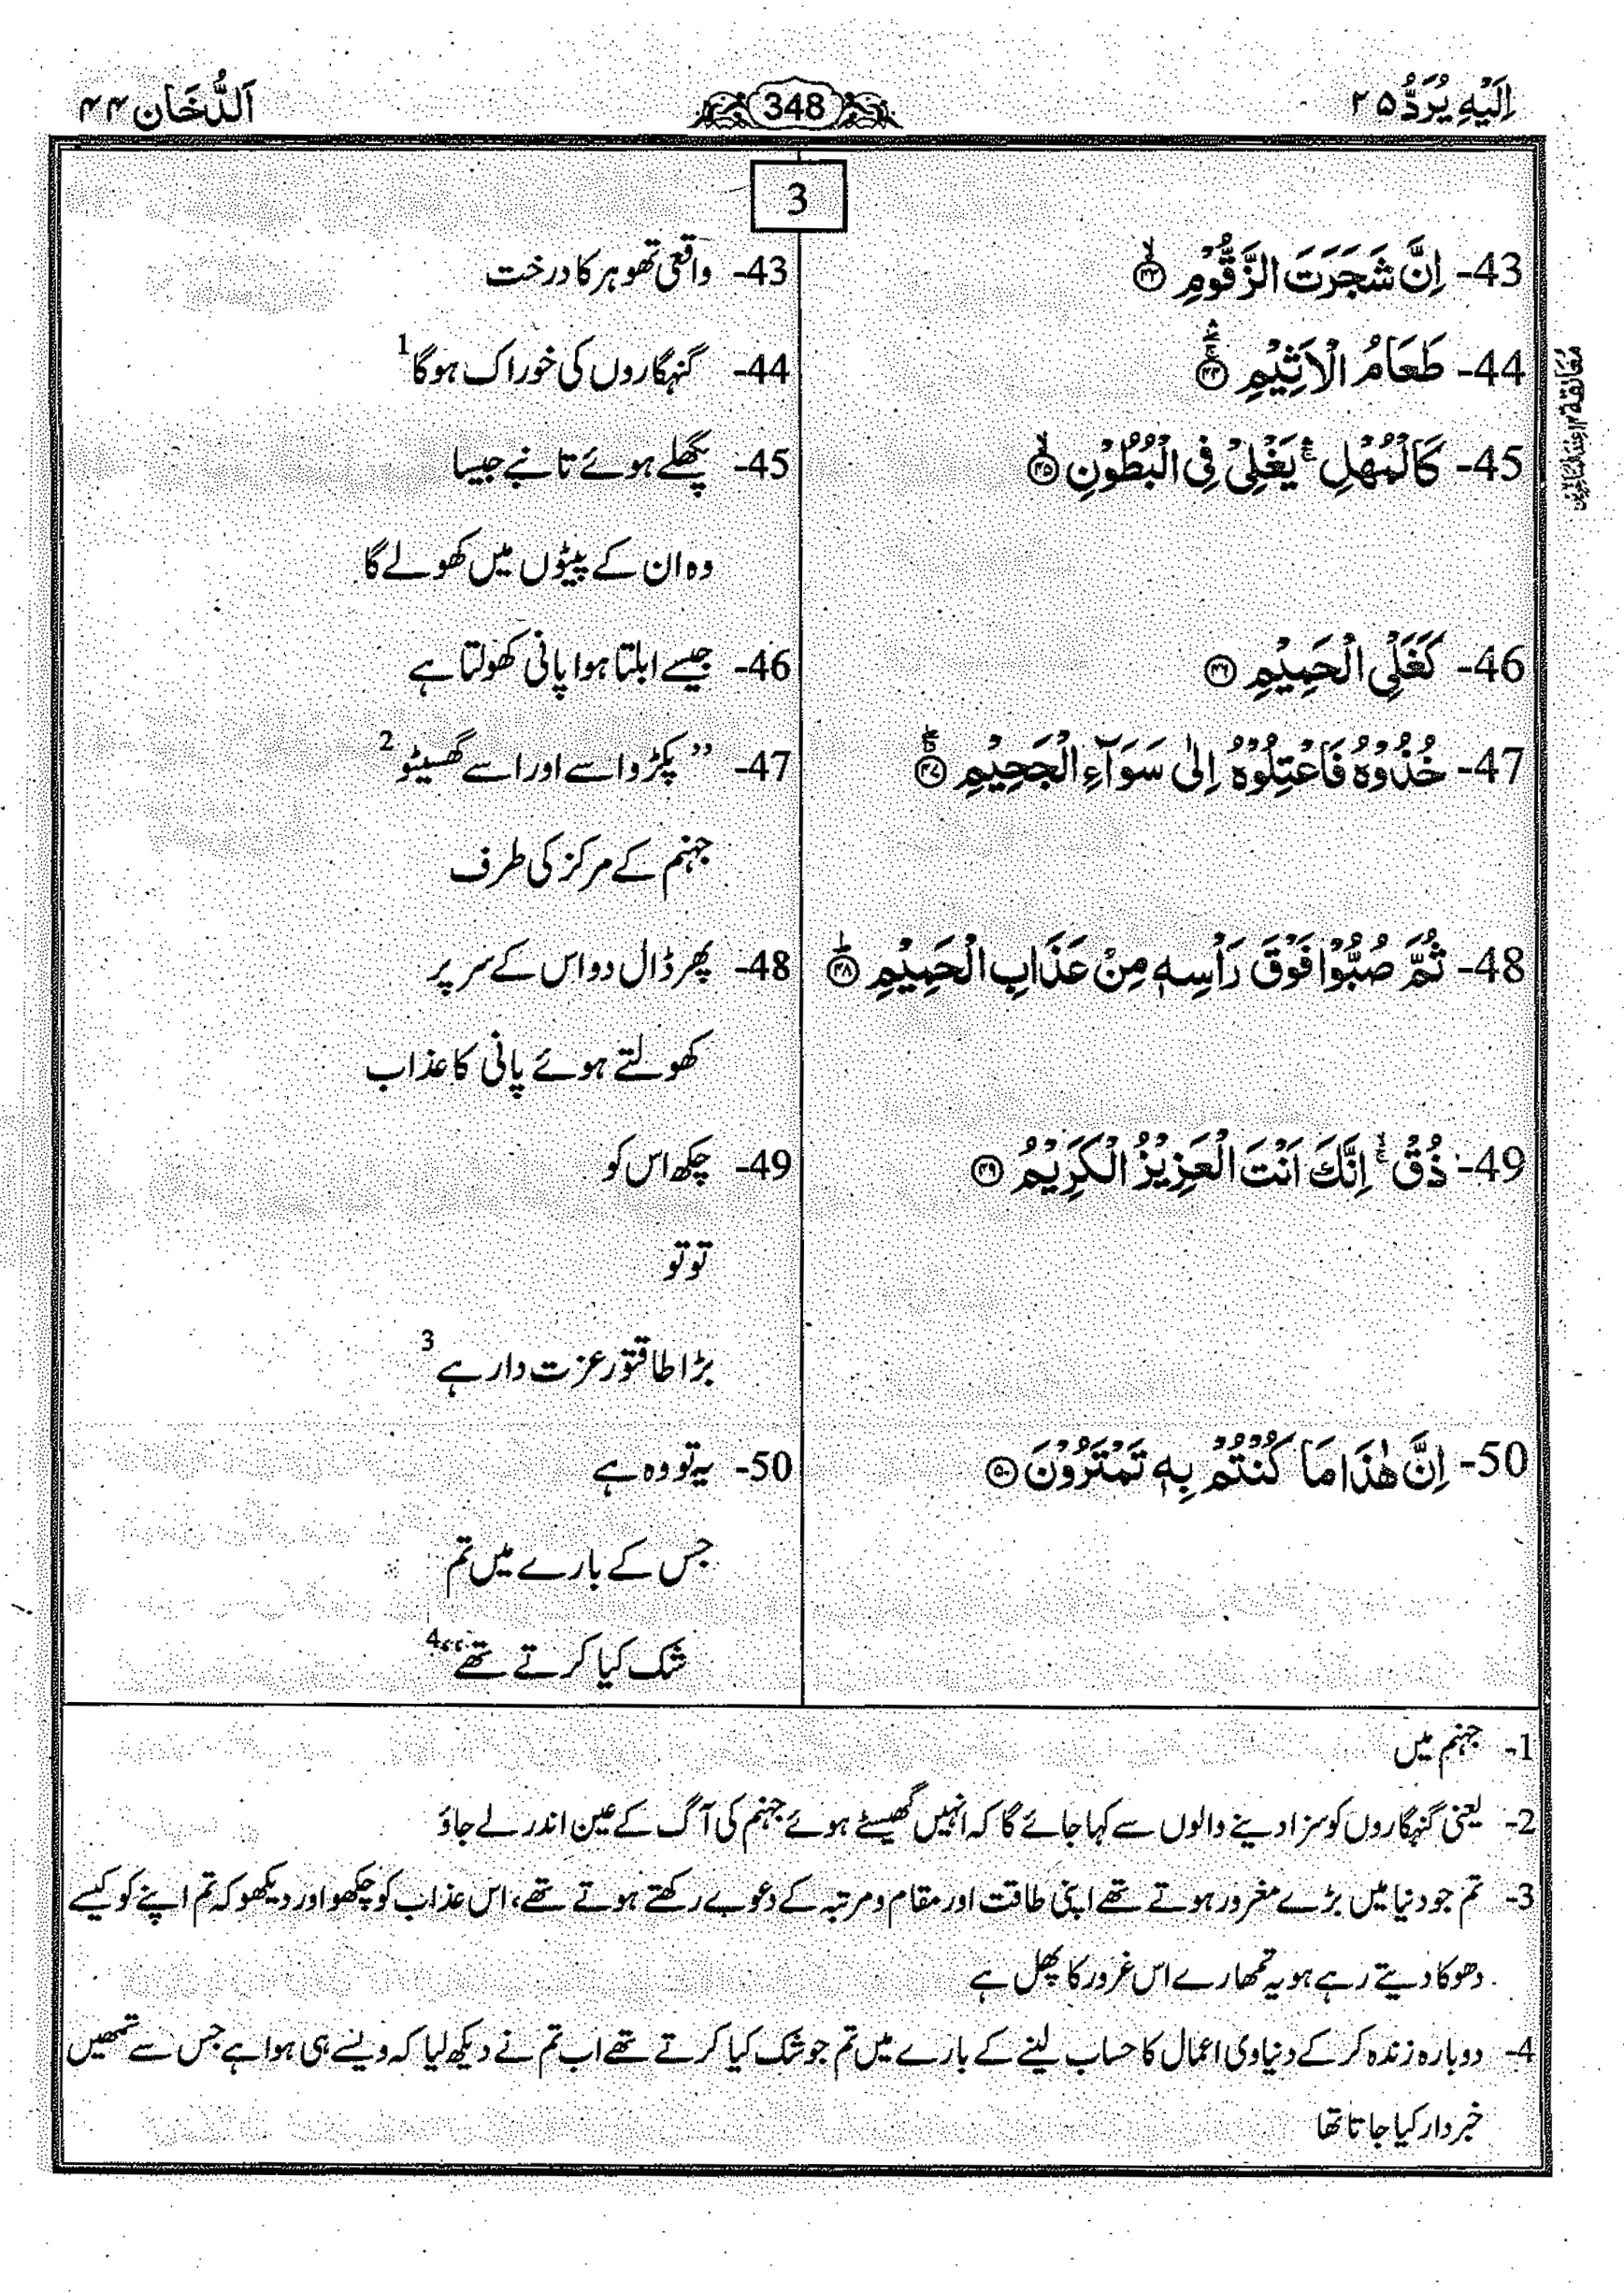 اِلَيْهِ يُرَدُّ ۲۵
348
اَلدُّخَان ۴۴
3
43- اِنَّ شَجَرَتَ الزَّقُّوْمِ ﴿۴۳﴾ۙ
44- طَعَامُ الْاَثِيْمِ ﴿۴۴﴾
45- كَالْمُهْلِ ۛۚ يَغْلِيْ فِي الْبُطُوْنِ ﴿۴۵﴾ۙ
46- كَغَلْيِ الْحَمِيْمِ ﴿۴۶﴾
47- خُذُوْهُ فَاعْتِلُوْهُ اِلٰى سَوَآءِ الْجَحِيْمِ ﴿۴۷﴾
48- ثُمَّ صُبُّوْا فَوْقَ رَاْسِهٖ مِنْ عَذَابِ الْحَمِيْمِ ﴿۴۸﴾ؕ
49- ذُقْ ۚ اِنَّكَ اَنْتَ الْعَزِيْزُ الْكَرِيْمُ ﴿۴۹﴾
50- اِنَّ هٰذَا مَا كُنْتُمْ بِهٖ تَمْتَرُوْنَ ﴿۵۰﴾
43- واقعی تھوہر کا درخت
44- گنہگاروں کی خوراک ہوگا 1
45- پگھلے ہوئے تانبے جیسا
وہ ان کے پیٹوں میں کھولے گا
46- جیسے ابلتا ہوا پانی کھولتا ہے
47- ’’پکڑو اسے اور اسے گھسیٹو 2
جہنم کے مرکز کی طرف
48- پھر ڈال دو اس کے سر پر
کھولتے ہوئے پانی کا عذاب
49- چکھ اس کو
تو تو
بڑا طاقتور عزت دار ہے 3
50- یہ تو وہ ہے
جس کے بارے میں تم
شک کیا کرتے تھے‘‘ 4
معانقة
1- جہنم میں
2- یعنی گنہگاروں کو سزا دینے والوں سے کہا جائے گا کہ انہیں گھسیٹے ہوئے جہنم کی آگ کے عین اندر لے جاؤ
3- تم جو دنیا میں بڑے مغرور ہوتے تھے اپنی طاقت اور مقام و مرتبہ کے دعوے رکھتے ہوتے تھے، اس عذاب کو چکھو اور دیکھو کہ تم اپنے کو کیسے
دھوکا دیتے رہے ہو یہ تمھارے اس غرور کا پھل ہے
4- دوبارہ زندہ کر کے دنیاوی اعمال کا حساب لینے کے بارے میں تم جو شک کیا کرتے تھے اب تم نے دیکھ لیا کہ ویسے ہی ہوا ہے جس سے تمھیں
خبردار کیا جاتا تھا